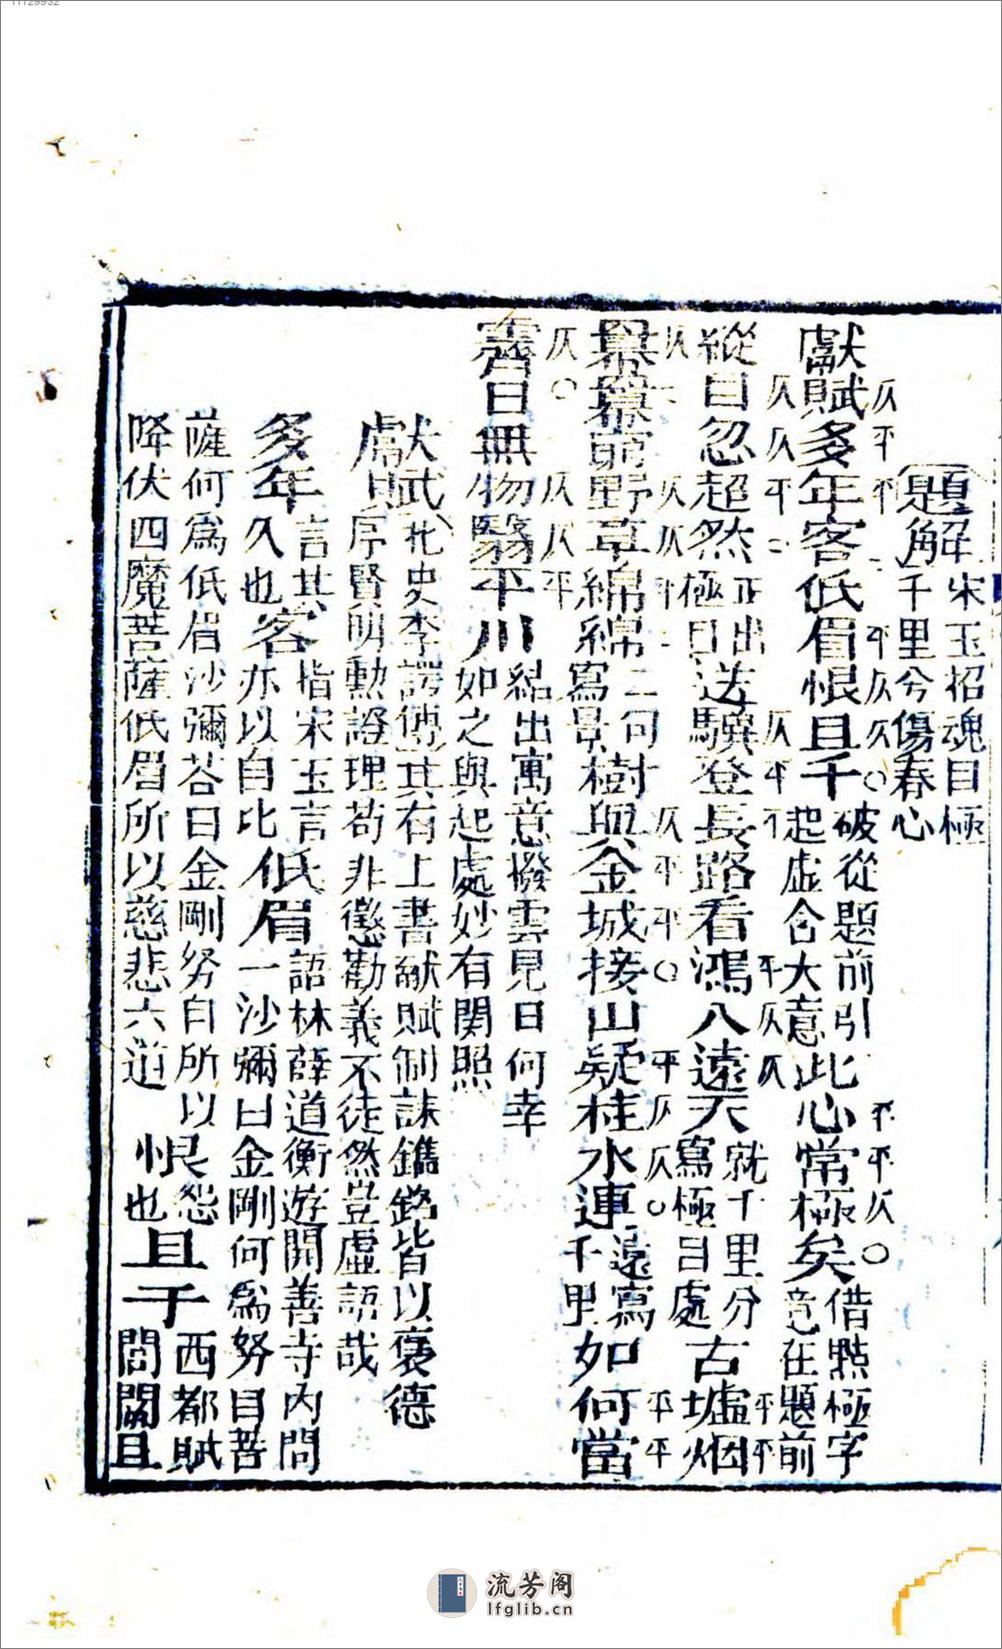 題解宋玉招魂目極
千里兮傷春心
獻賦多年客低眉恨且千破從題前引起虛含大意此心常極矣借點極字意在題前
縱目忽超然正出極目送驥登長路看鴻入遠天就千里分寫極目處古墟烟
冪冪荒野草綿綿二句寫景樹與金城接山疑桂水連遠寫千里如何當
霽日無物翳平川結出寓意撥雲見日何幸如之與起處妙有関照
獻賦北史李諤傳其有上書献賦制誄鐫銘皆以褒德序賢明勲證理苟非懲勸義不徒然豈虛語哉
多年言其久也客指宋玉言亦以自比低眉語林薛道衡遊開善寺內問一沙彌曰金剛何為努目菩
薩何為低眉沙彌荅曰金剛努目所以
降伏四魔菩薩低眉所以慈悲六道恨怨也且千西都賦閭閻且
仄平平
平仄仄〇
平平仄〇
平仄仄
流芳阁
lfglib.cn